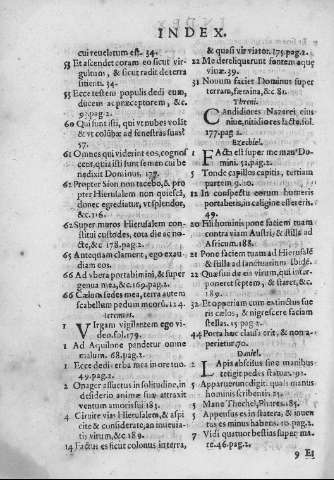 INDEX.
cui reuelatum est. 34.
53 Et ascendet coram eo sicut vir-
gultum, & sicut radit de terra
sitienti. 34.
55 Ecce testem populis dedi eum,
ducem ac præceptorem, &c.
9. pag. 2.
60 Qui sunt isti, qui vt nubes volāt
& vt colūbæ ad fenestras suas?
57.
61 Omnes qui viderint eos, cognos
cent, quia isti sunt semen cui be
nedixit Dominus. 178.
62 Propter Sion non tacebo, & pro
pter Hierusalem non quiescā,
donec egrediatur, vt splendor,
&c. 116.
62 Super muros Hierusalem con-
stitui custodes, tota die ac no-
cte, &c 178. pag. 2.
65 Antequam clament, ego exau
diam eos.
66 Ad vbera portabimini, & super
genua mea, &c. 169. pag. 2.
66 Cælum sedes mea, terra autem
scabellum pedum meorū. 124.
Ieremias.
1 Virgam vigilantem ego vi-
deo. fol. 179.
1 Ad Aquilone pandetur omne
malum. 68. pag. 2.
1 Ecce dedi verba mea in ore tuo.
49. pag. 2.
2 Onager assuetus in solitudine, in
desiderio animæ suæ attraxit
ventum amoris sui 183.
4 Circuite vias Hierusalem, & aspi
cite & considerate, an inuenia-
tis virum, & c 189.
14 Factus es sicut colonus in terra,
& quasi vir viator. 175. pag. 2.
22 Me dereliquerunt fontem aquę
viuæ. 39.
31 Nouum faciet Dominus super
terram, fœmina, &c. 81.
Threni.
Candidiores Nazarei eius
niue, nitidiores lacte. fol.
177. pag. 2.
Ezechiel.
1 Facta est super me manus Do-
mini. 52. pag. 2.
5 Tonde capillos capitis, tertiam
partem
12 In conspectu eorum humeris
portaberis, in caligine effereris.
49.
20 Fili hominis pone faciem tuam
contra viam Austri, & stilla ad
Africum. 188.
21 Pone faciem tuam ad Hierusalē
& stilla ad sanctuarium. Ibidē.
22 Quæsiui de eis virum, qui inter-
poneret sepem, & staret, &c.
189.
32 Et operiam cum extinctus fue
ris cælos, & nigrescere faciam
stellas. 15. pag. 2.
44 Porta hæc clausa erit, & non a-
perietur 70.
Daniel.
2 Lapis abscisus sine manibus
tetigit pedes statuæ.
5 Apparuerunt digiti quasi manus
hominis scribentis.
5 Mane Thechel, Phares. 185.
5 Appensus es in statera, & inuen
tus es minus habens. 10. pag. 2.
7 Vidi quatuor bestias super ma-
re. 46. pag. 2.
9 Ei